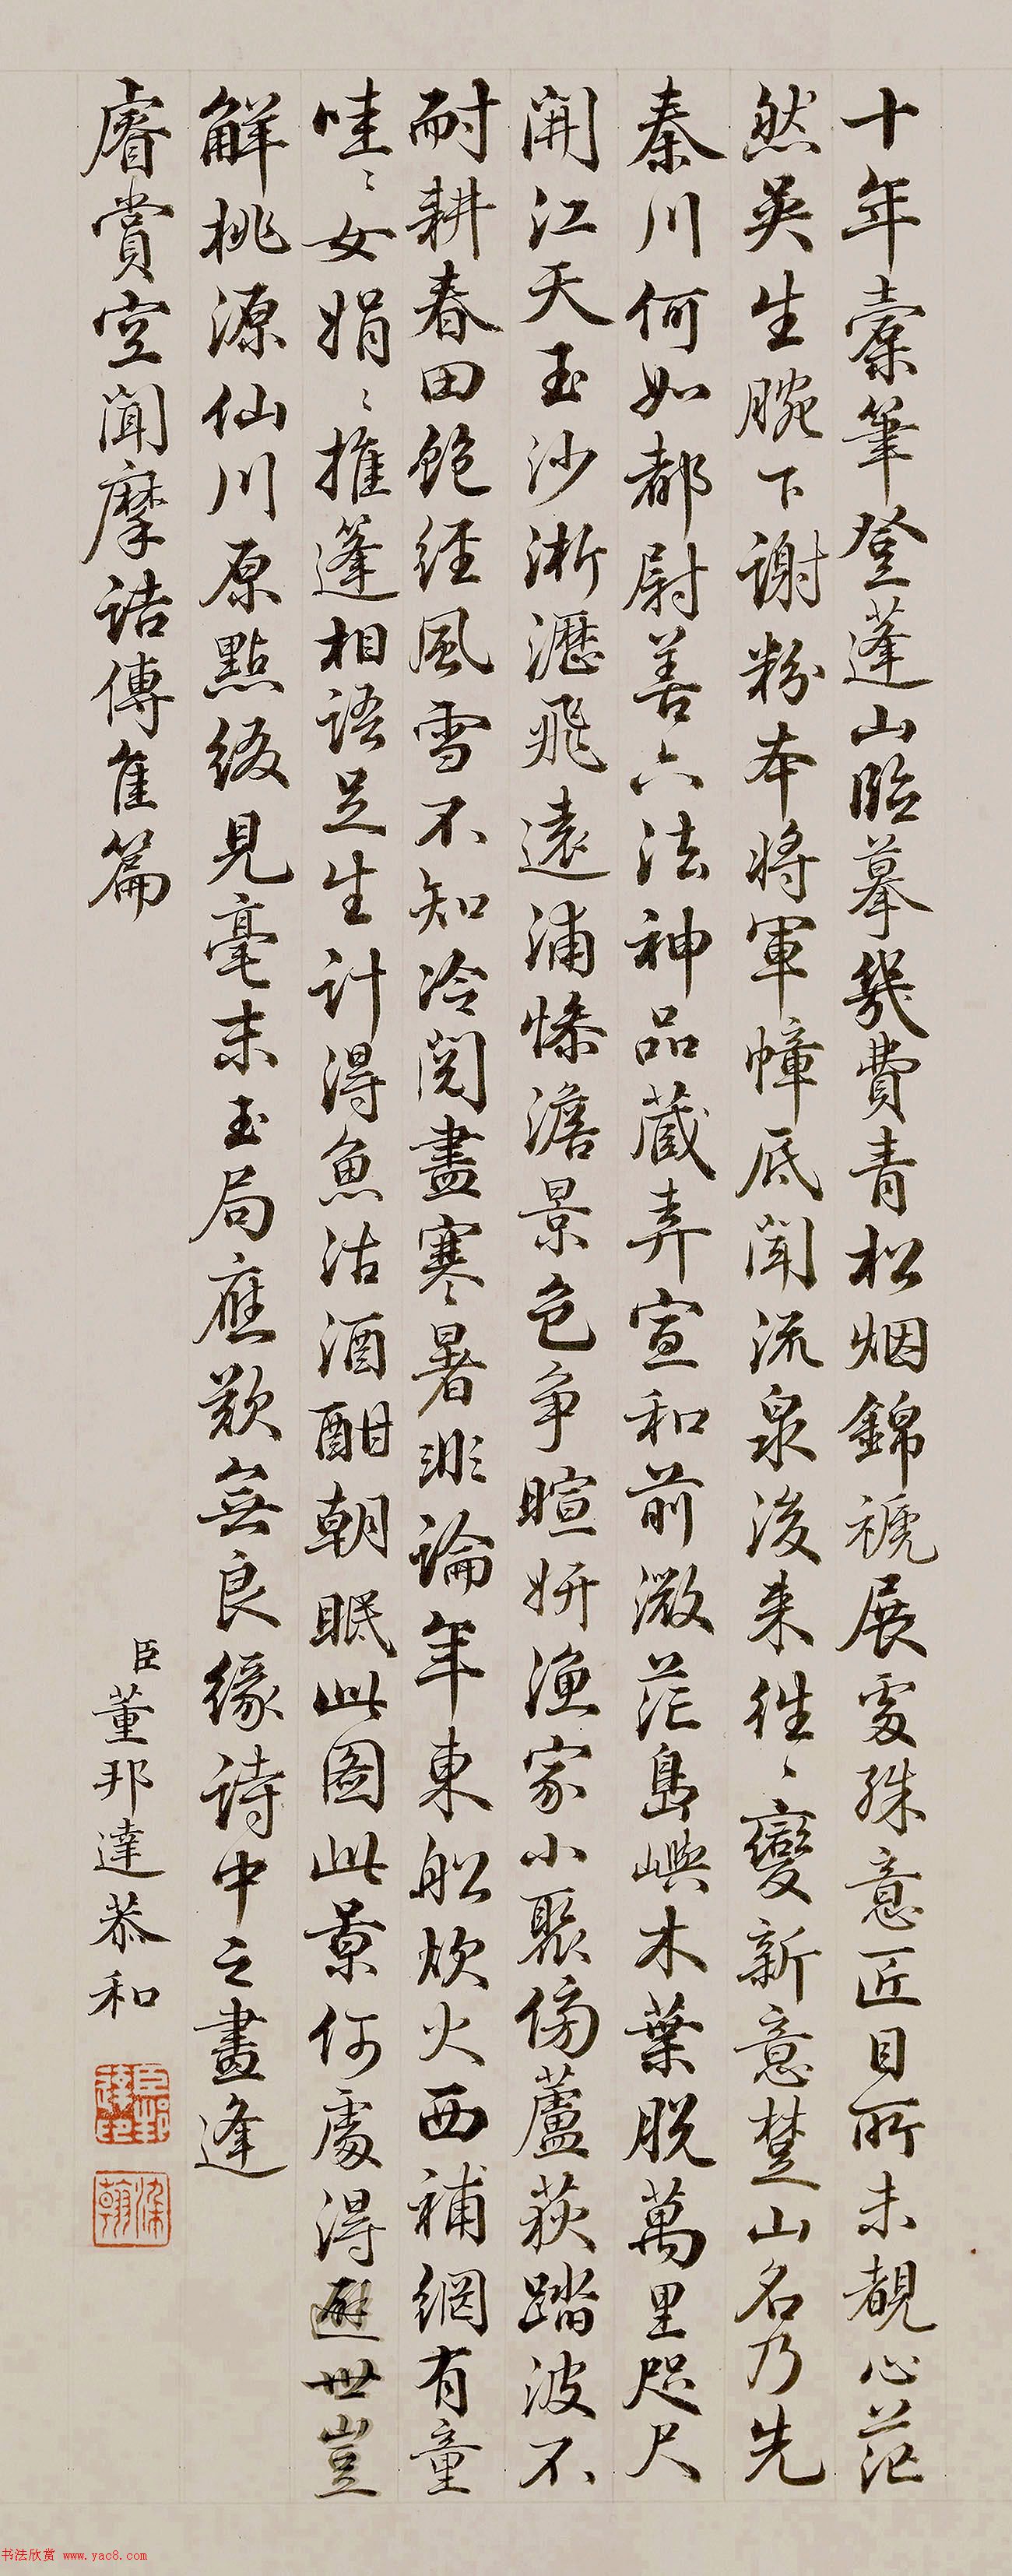 十年櫜筆登蓬山臨摹幾費青松烟錦褫展處殊意匠目所未覩心茫
然英生腕下謝粉本將軍幛底聞流泉後来往〻變新意楚山名乃先
秦川何如都尉善六法神品藏弆宣和前微茫島嶼木葉脱萬里咫尺
開江天玉沙淅瀝飛遠浦慘澹景色争暄妍漁家小聚傍蘆荻踏波不
耐耕春田飽經風雪不知冷閲盡寒暑非論年東船炊火西補網有童
哇〻女娟〻推篷相語足生計得魚沽酒酣朝眠此圖此景何處得避世豈
解桃源仙川原點綴見毫末玉局應歎無良緣詩中之畫逢
睿賞空聞摩詰傳隹篇
臣董邦達恭和
臣邦達印
染翰
书法欣赏 www.yac8.com